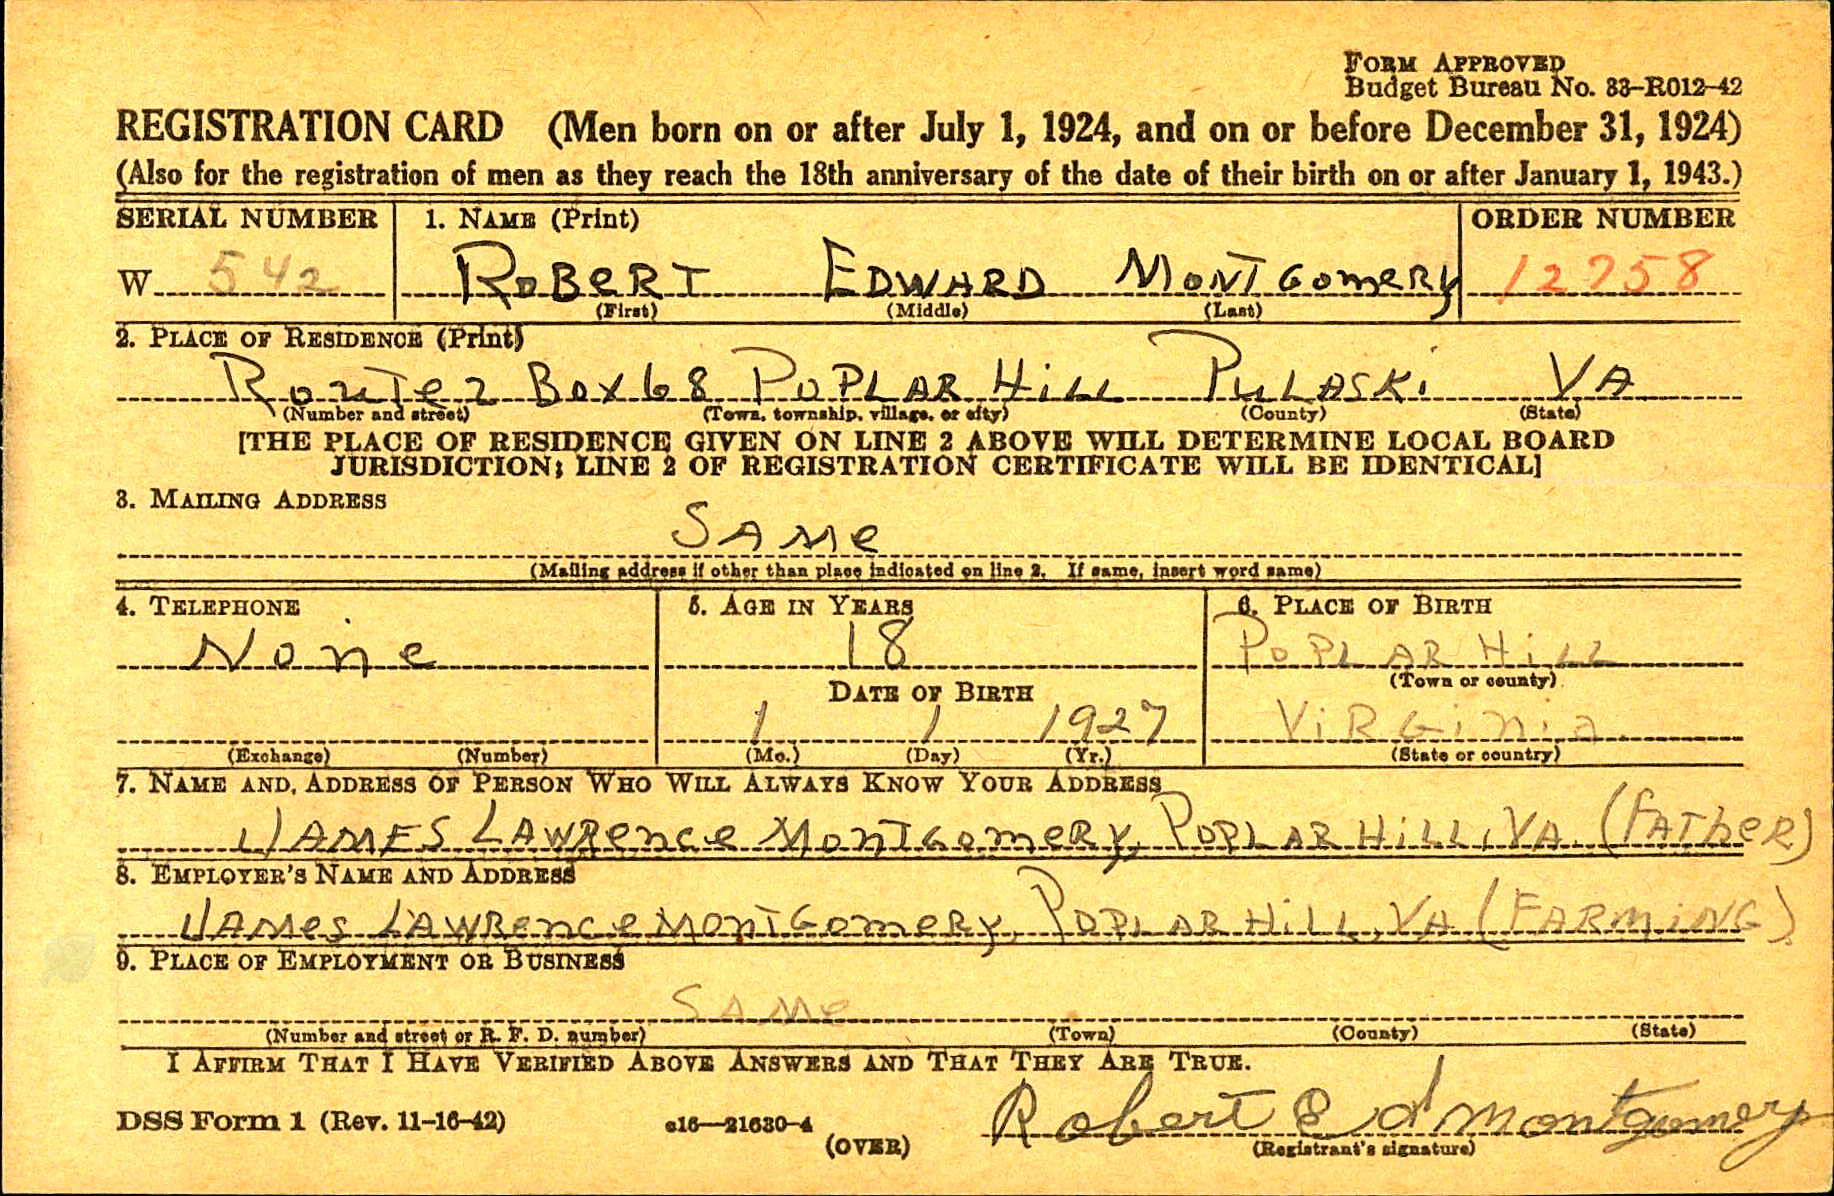 FORM APPROVED
Budget Bureau No. 33-R012-42
REGISTRATION CARD (Men born on or after July 1, 1924, and on or before December 31, 1924)
(Also for the registration of men as they reach the 18th anniversary of the date of their birth on or after January 1, 1943.)
SERIAL NUMBER 1. NAME (Print) ORDER NUMBER
W 542 ROBERT EDWARD MONTGOMERY 12758
(First) (Middle) (Last)
2. PLACE OF RESIDENCE (Print)
Route 2 Box 68 POPLAR HILL PULASKI VA
(Number and street) (Town, township, village, or city) (County) (State)
[THE PLACE OF RESIDENCE GIVEN ON LINE 2 ABOVE WILL DETERMINE LOCAL BOARD
JURISDICTION; LINE 2 OF REGISTRATION CERTIFICATE WILL BE IDENTICAL]
3. MAILING ADDRESS
SAME
(Mailing address if other than place indicated on line 2. If same, insert word same)
4. TELEPHONE 5. AGE IN YEARS 6. PLACE OF BIRTH
None 18 POPLAR HILL
(Town or county)
DATE OF BIRTH
1 1 1927 VIRGINIA
(Exchange) (Number) (Mo.) (Day) (Yr.) (State or country)
7. NAME AND ADDRESS OF PERSON WHO WILL ALWAYS KNOW YOUR ADDRESS
JAMES LAWRENCE MONTGOMERY, POPLAR HILL, VA. (FATHER)
8. EMPLOYER'S NAME AND ADDRESS
JAMES LAWRENCE MONTGOMERY, POPLAR HILL, VA (FARMING)
9. PLACE OF EMPLOYMENT OR BUSINESS
SAME
(Number and street or R. F. D. number) (Town) (County) (State)
I AFFIRM THAT I HAVE VERIFIED ABOVE ANSWERS AND THAT THEY ARE TRUE.
DSS Form 1 (Rev. 11-16-42) c16—21630-4 Robert Ed Montgomery
(OVER) (Registrant's signature)